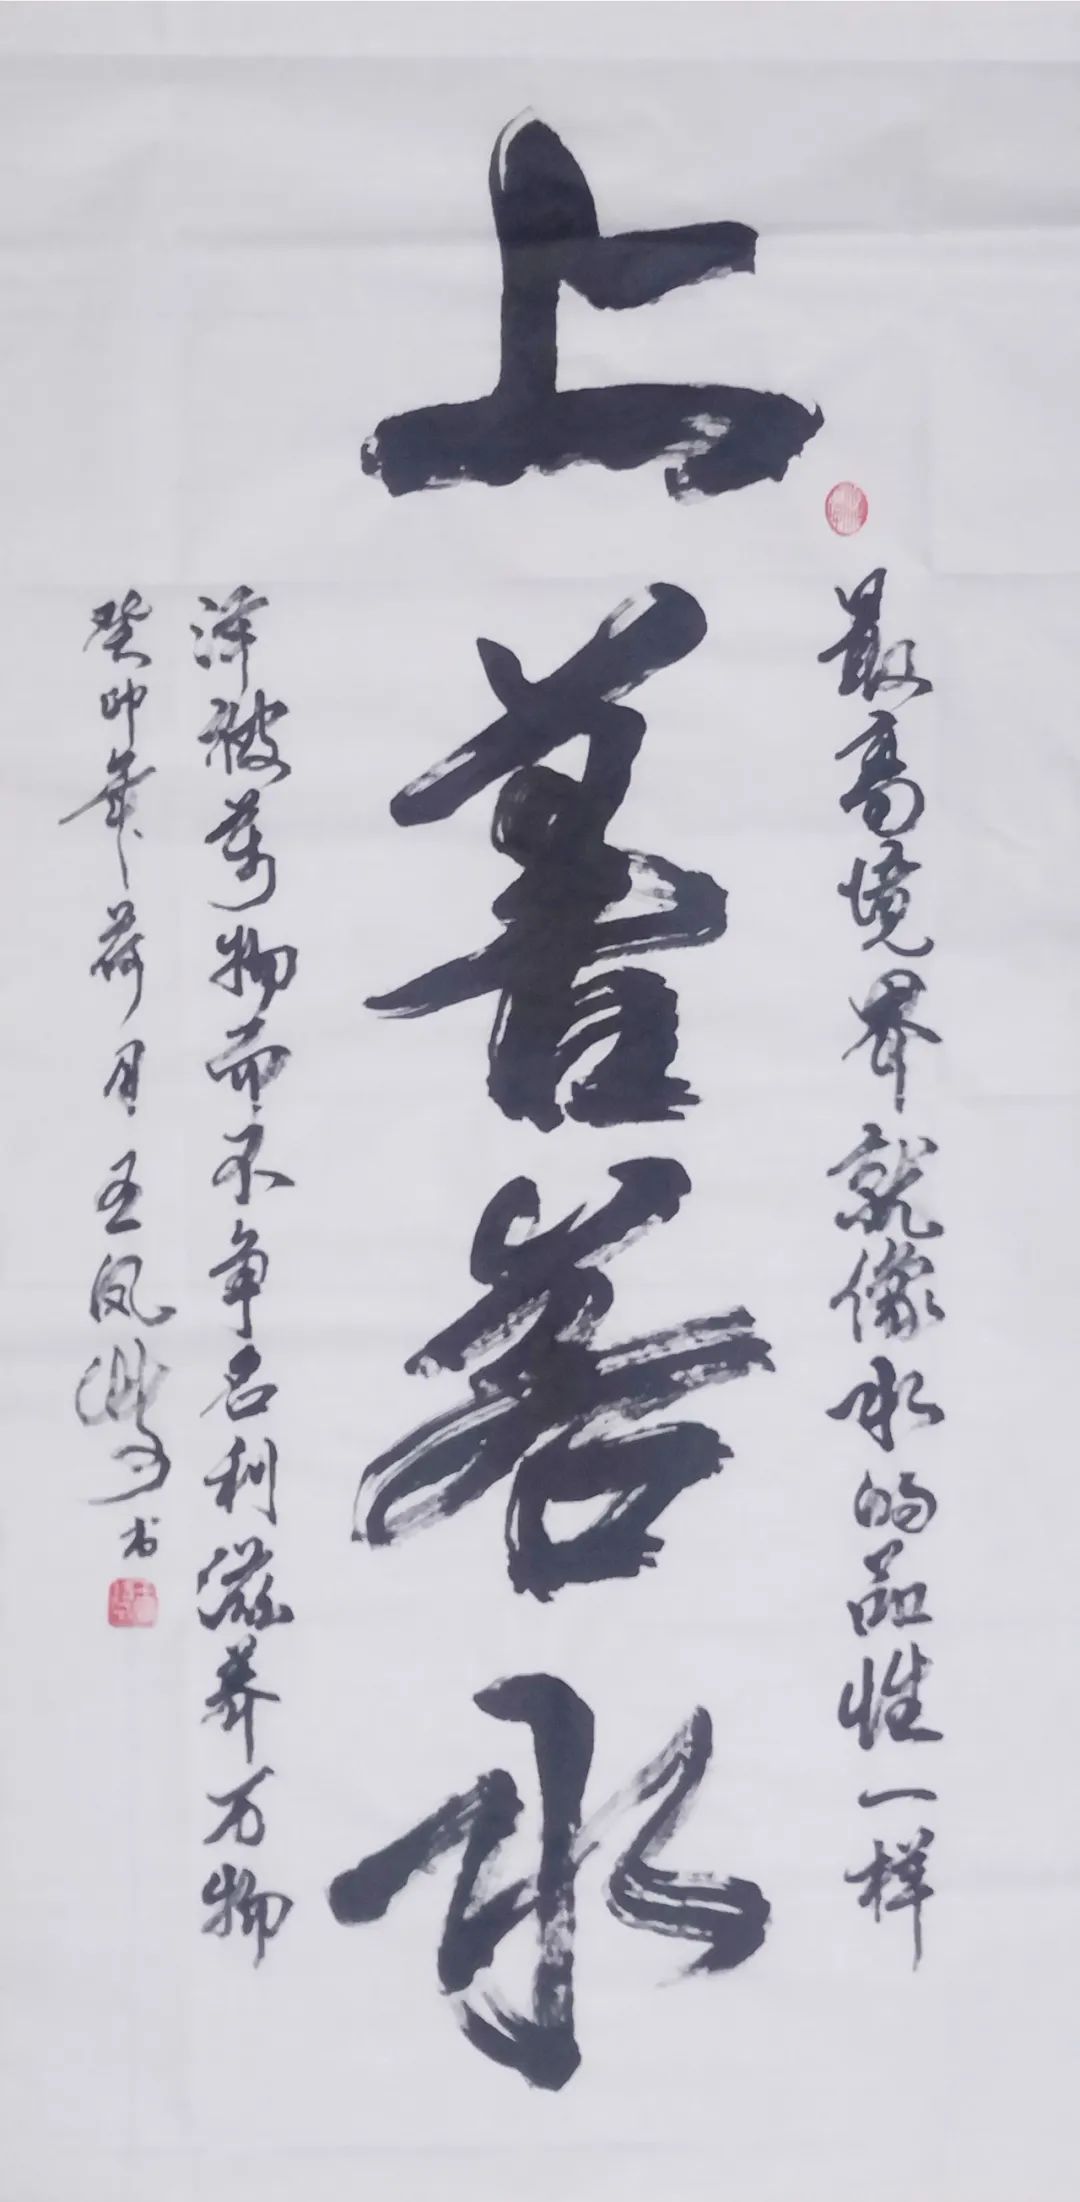 上善若水
最高境界就像水的品性一样
泽被万物而不争名利滋养万物
癸卯年荷月王凤
书